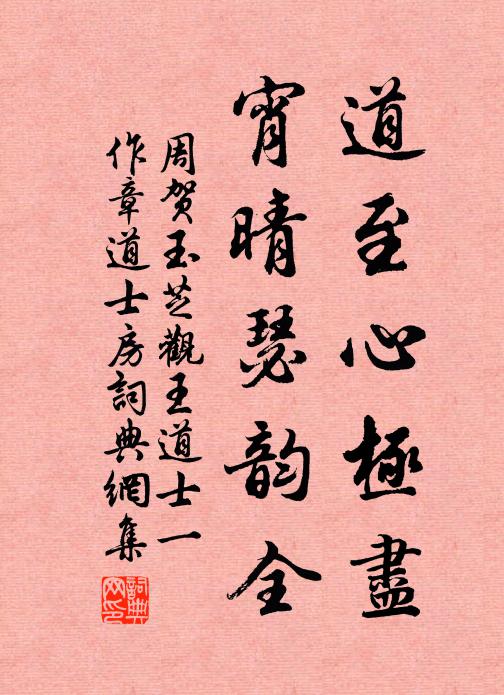 道至心極盡
宵晴瑟韵全
周贺玉芝觀王道士一
作章道士房詞典網集
詞典网印